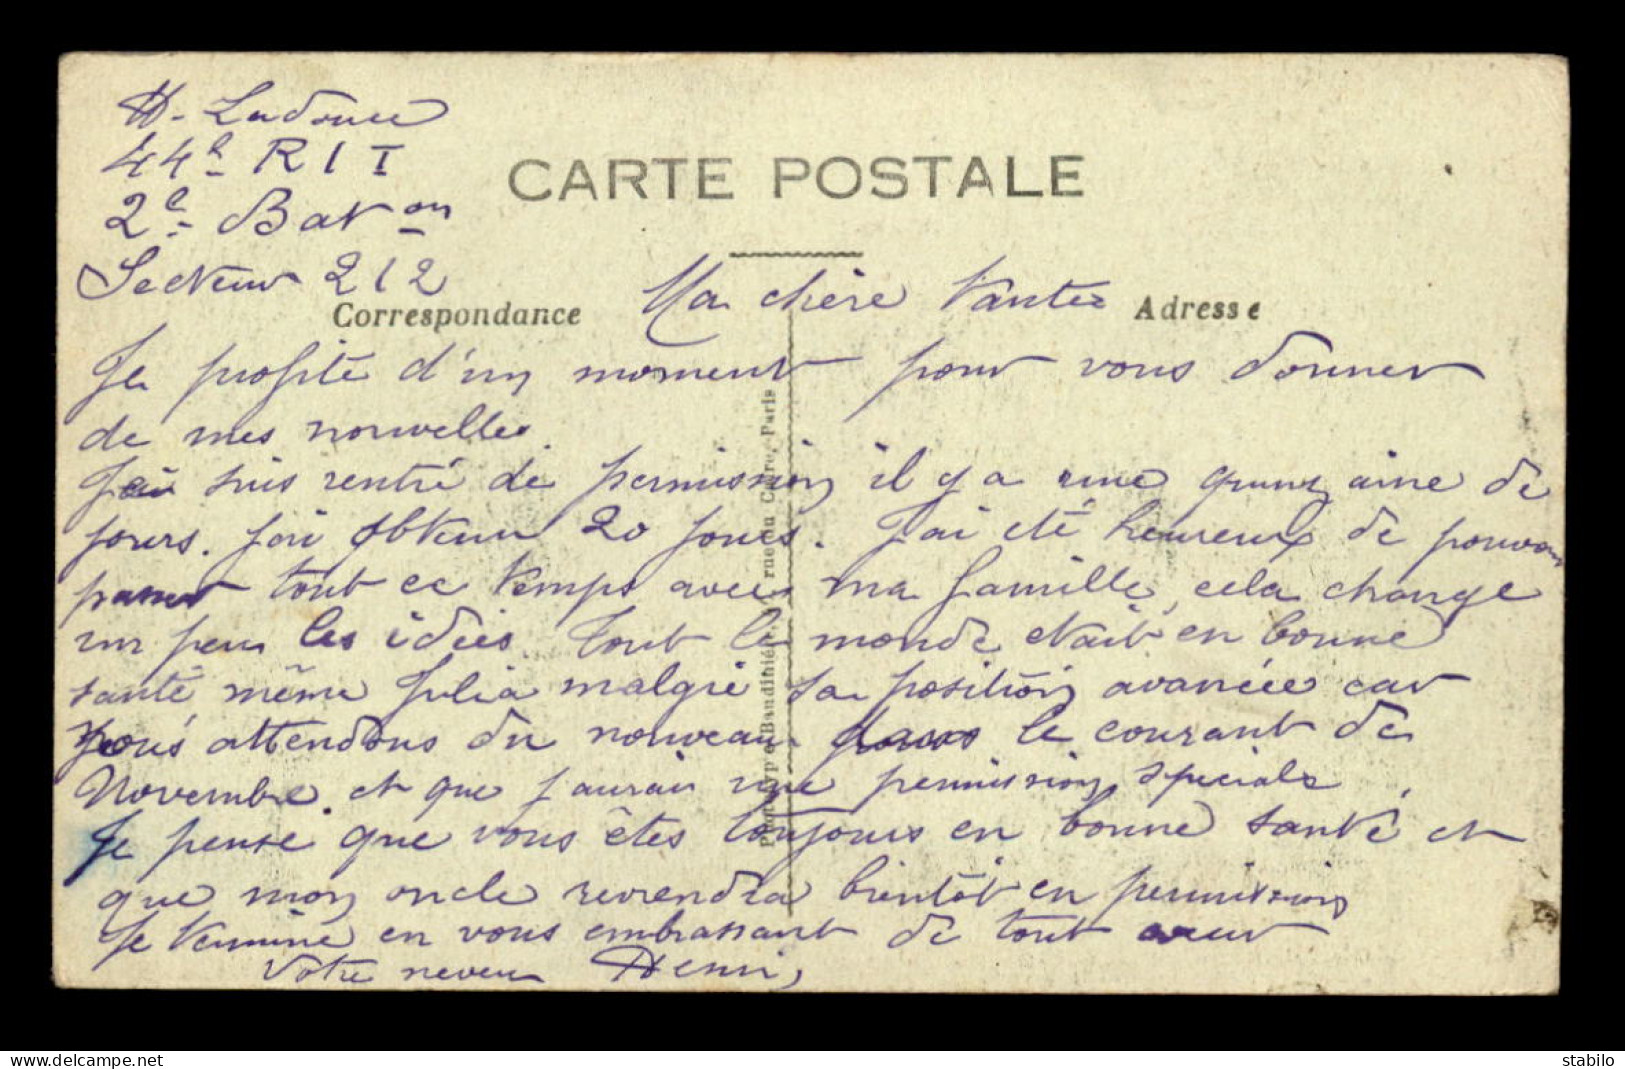 H. Ladouce
44e R I T
2e Baton
Secteur 212
CARTE POSTALE
Correspondance
Adresse
Ma chère Tante
Je profite d'un moment pour vous donner
de mes nouvelles.
Je suis rentré de permission il y a une quinzaine de
jours. J'ai obtenu 20 jours. J'ai été heureux de pouvoir
passer tout ce temps avec ma famille, cela change
un peu les idées. Tout le monde était en bonne
santé même Julia malgré sa position avancée car
nous attendons du nouveau dans le courant de
Novembre. et que j'aurai une permission spéciale.
Je pense que vous êtes toujours en bonne santé et
que mon oncle reviendra bientôt en permission
Je termine en vous embrassant de tout cœur
Votre neveu Henri
rue du Caire, Paris
stabilo